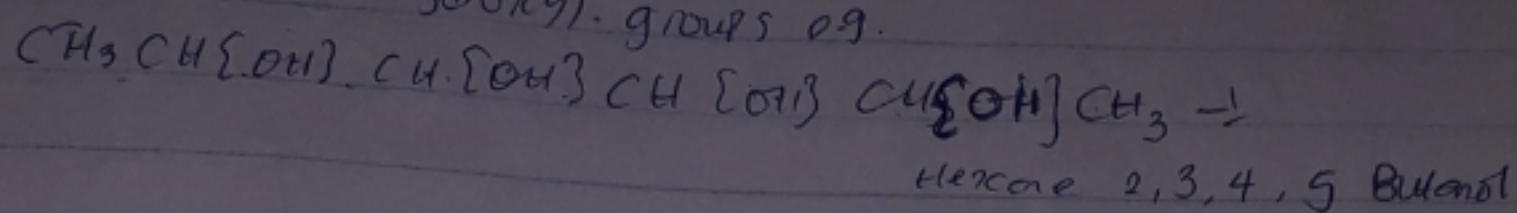 groups eg.
CH₃ CH{OH}. CH.{OH} CH {OH} CH{OH} CH₃ →
Hexane 2, 3, 4, 5 Butanol